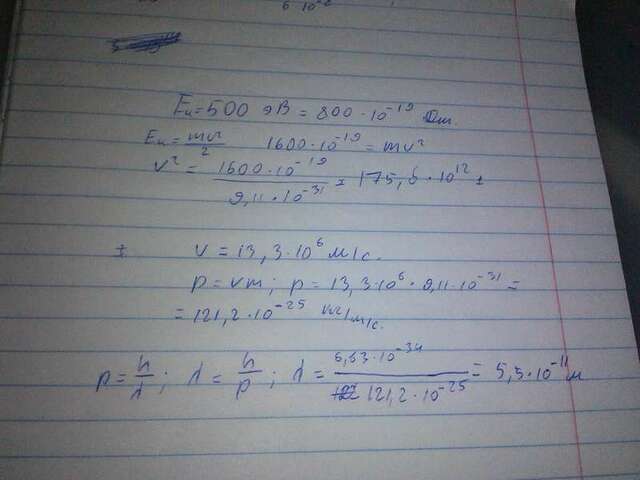 6 · 10
Eк = 500 эВ = 800 · 10⁻¹⁹ Дж.
Eк = mv²/2   1600 · 10⁻¹⁹ = mv²
v² = 1600 · 10⁻¹⁹ / 9,11 · 10⁻³¹ = 175,6 · 10¹² ±
± v = 13,3 · 10⁶ м/с.
p = vm; p = 13,3 · 10⁶ · 9,11 · 10⁻³¹ =
= 121,2 · 10⁻²⁵ кг/м/с.
p = h/λ; λ = h/p; λ = 6,63 · 10⁻³⁴ / 121,2 · 10⁻²⁵ = 5,5 · 10⁻¹¹ м